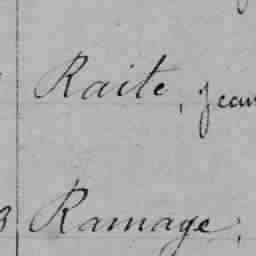 Raite, Jean
3 Ramage,